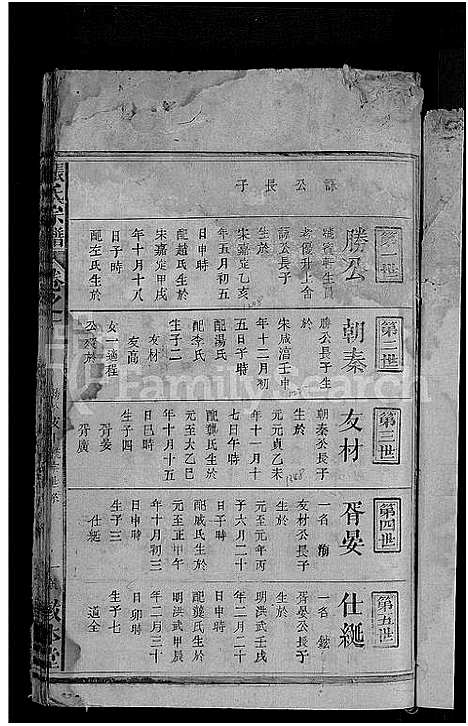 詠公長子
第一世
勝公
詠公長子
生於
宋嘉定乙亥
年五月初五
日申時
配趙氏生於
宋嘉定甲戌
年十月十八
日子時
配左氏生於
第二世
朝秦
勝公長子生
於
宋咸淳壬申
年十二月初
五日子時
配湯氏
配李氏
生子二
友材
友高
女一適程
公
第三世
友材
朝秦公長子
生於
元元貞乙未
年十一月十
七日午時
配龔氏生於
年十月十五
日巳時
生子四
胥晏
胥廣
第四世
胥晏
一名
友材公長子
生於
元至元年丙
子六月二十
日申時
配戚氏生於
元至正甲午
年十月初三
日申時
生子三
仕綖
第五世
仕綖
一名 鉉
胥晏公長子
生於
明洪武壬戌
年二月二十
日申時
配龔氏生於
明洪武甲辰
年二月三十
日卯時
生子七
道全
張氏宗譜
敬本堂
FamilySearch